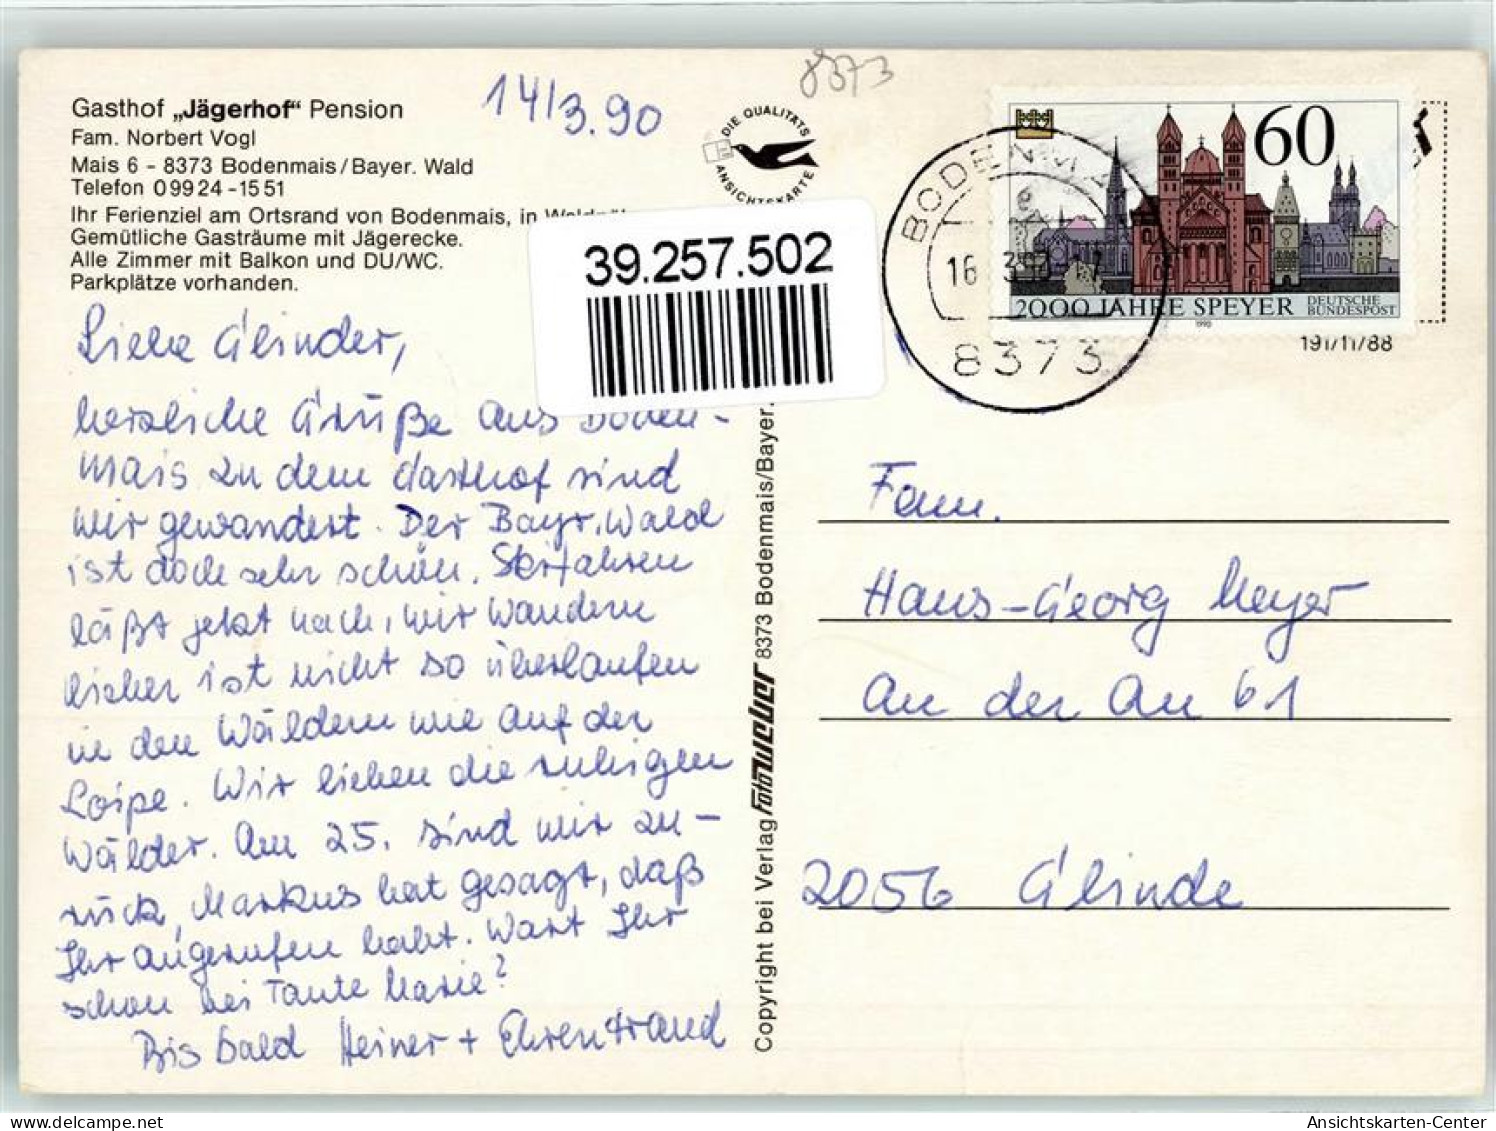 8373
14/3.90
Gasthof „Jägerhof“ Pension
Fam. Norbert Vogl
Mais 6 - 8373 Bodenmais/Bayer. Wald
Telefon 09924-1551
Ihr Ferienziel am Ortsrand von Bodenmais, in
Gemütliche Gasträume mit Jägerecke.
Alle Zimmer mit Balkon und DU/WC.
Parkplätze vorhanden.
DIE QUALITÄTS
ANSICHTSKARTE
39.257.502
60
2000 JAHRE SPEYER
DEUTSCHE
BUNDESPOST
1990
BODENMA
16
8373
191/11/88
Liebe Glinder,
herzliche Grüße aus Boden-
mais zu dem Gasthof sind
wir gewandert. Der Bayr. Wald
ist doch sehr schön. Skifahren
läßt jetzt nach, wir wandern
lieber ist nicht so überlaufen
in den Wäldern wie auf der
Loipe. Wir lieben die ruhigen
Wälder. Am 25. sind wir zu-
rück, Markus hat gesagt, daß
Ihr angerufen habt. Wart Ihr
schon bei Tante Marie?
Bis bald Heiner + Ehrentraud
Copyright bei Verlag Foto Weber 8373 Bodenmais/Bayer.
Fam.
Hans-Georg Meyer
An der Au 61
2056 Glinde
Ansichtskarten-Center